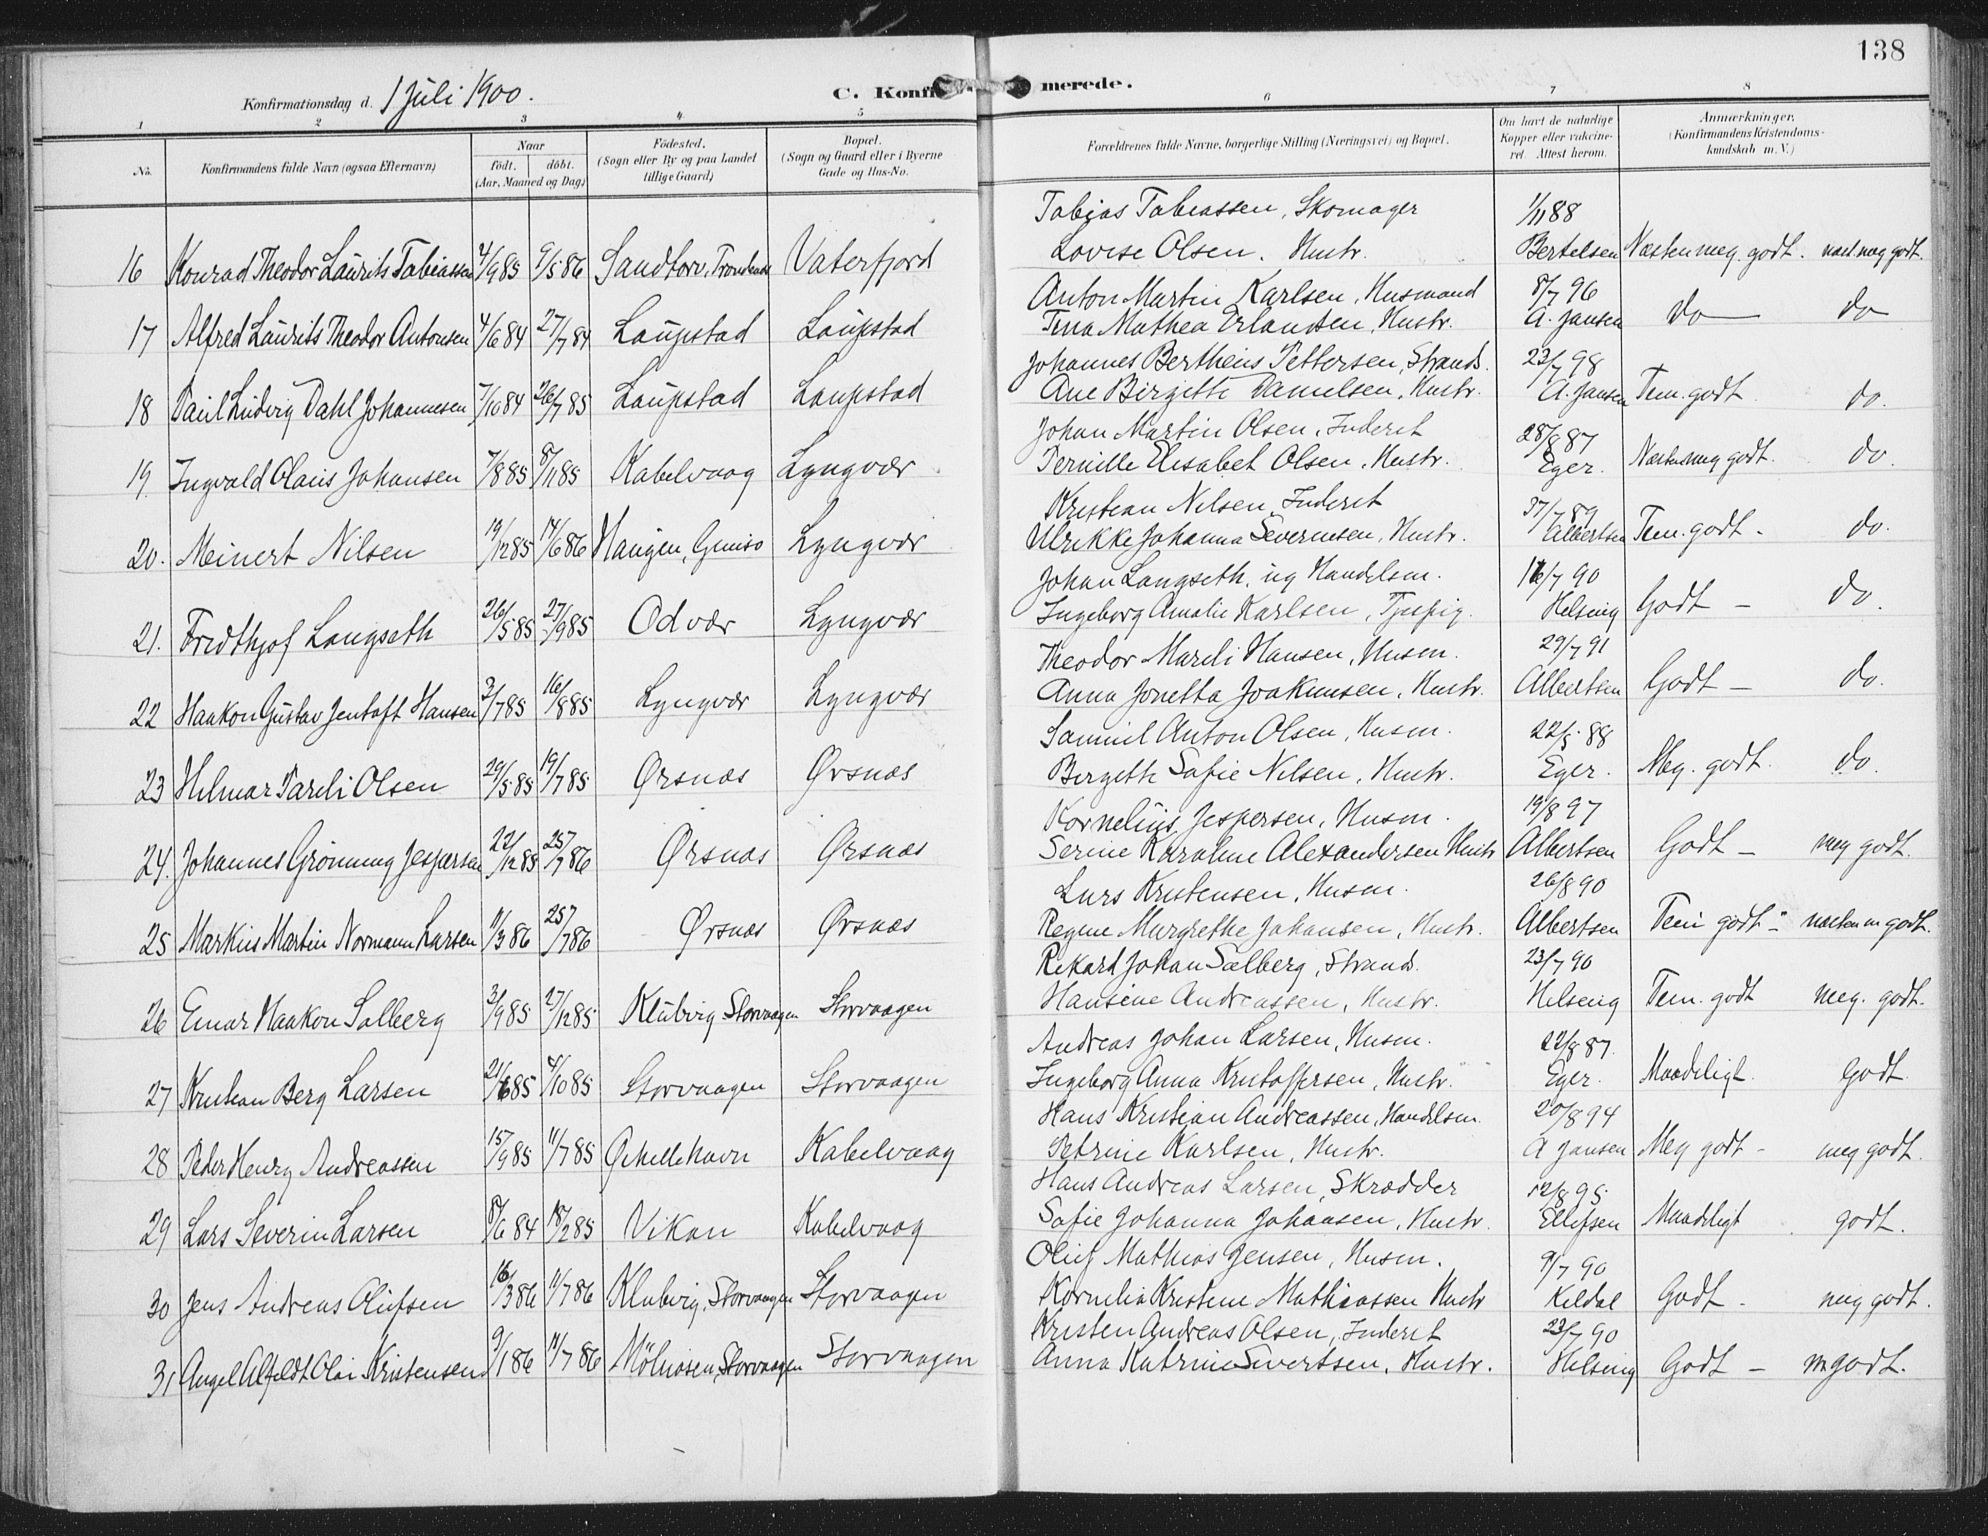 138
Konfirmationsdag d. 1 Juli 1900.
C. Konfir merede.
1 2 3 4 5 6 7 8
No.
Konfirmandens fulde Navn (ogsaa Efternavn)
Naar
født. døbt.
(Aar, Maaned og Dag)
Fødested.
(Sogn eller By og paa Landet
tillige Gaard)
Bopæl.
(Sogn og Gaard eller i Byerne
Gade og Hus-No.
Forældrenes fulde Navne, borgerlige Stilling (Næringsvei) og Bopæl.
Om havt de naturlige
Kopper eller vakcine-
ret. Attest herom.
Anmærkninger.
(Konfirmandens Kristendoms-
kundskab m. V.)
Tobias Tobiassen, Skomager 1/11 88
16 Konrad Theodor Laurits Tobiassen 4/9 85 9/5 86 Sandtorv, Trondenæs Vaterfjord Lovise Olsen. Hustr. Bertelsen Næsten meg. godt. næst. meg godt.
Anton Martin Karlsen, Husmand 8/7 96
17 Alfred Laurits Theodor Antonsen 4/6 84 27/7 84 Laupstad Laupstad Tina Mathea Erlandsen, Hustr. A. Jansen do do
Johannes Bertheus Pettersen, Strands. 23/7 98
18 Paul Ludvig Dahl Johannesen 7/10 84 26/7 85 Laupstad Laupstad Ane Birgitte Danielsen, Hustr. A. Jansen Tem. godt do.
Johan Martin Olsen, Inderst 28/8 87
19. Ingvald Olaus Johansen 7/8 85 8/11 85 Kabelvaag Lyngvær Pernille Elisabet Olsen, Hustr. Eger. Næsten meg godt. do.
Kristian Nilsen, Inderst /7 89
20. Meinert Nilsen 19/12 85 14/6 86 Haugen, Gimsø Lyngvær Ulrikke Johanna Severinsen, Hustr. Albertsen Tem. godt - do.
Johan Langseth, ug Handelsm. 16/7 90
21. Fredthjof Langseth 26/5 85 27/9 85 Odvær Lyngvær Ingeborg Amalie Karlsen, Tjspig. Helseng Godt - do.
Theodor Mareli Hansen, Husm. 29/7 91
22 Haakon Gustav Jentoft Hansen 3/7 85 16/8 85 Lyngvær Lyngvær Anna Jonetta Joakimsen, Hustr. Albertsen Godt - do.
Samuel Anton Olsen, Husm. 22/5 88
23 Hilmar Pareli Olsen 29/5 85 19/7 85 Ørsnæs Ørsnæs Birgitte Sofie Nilsen, Hustr. Eger. Meg. godt. do.
Kornelius Jespersen, Husm. 19/8 97
24. Johannes Grønning Jespersen 22/12 85 25/7 86 Ørsnæs Ørsnæs Serine Karoline Alexandersen Hustr Albertsen Godt - meg godt.
Lars Kristensen, Husm. 26/8 90
25 Markus Martin Normann Larsen 11/3 86 25/7 86 Ørsnæs Ørsnæs Regine Margrethe Johansen, Hustr. Albertsen Tem godt - næsten m godt.
Rikard Johan Solberg, Strands. 23/7 90
26 Einar Haakon Solberg 3/9 85 27/12 85 Klubvig Storvaagen Storvaagen Hansine Andreassen, Hustr. Helseng Tem. godt meg. godt.
Andreas Johan Larsen, Husm. 22/8 87.
27 Kristian Berg Larsen 21/6 85 4/10 85 Storvaagen Storvaagen Ingeborg Anna Kristoffersen, Hustr. Eger. Maadeligt. Godt
Hans Kristian Andreassen, Handelsm 20/8 94
28 Peder Henry Andreassen 15/9 85 11/7 85 Ørhellehavn Kabelvaag Petrine Karlsen, Hustr. A Jansen Meg godt - meg godt.
Hans Andreas Larsen, Skrædder 12/8 95
29 Lars Severin Larsen 8/6 84 18/2 85 Vikan Kabelvaag Sofie Johanna Johansen, Hustr. Ellefsen Maadeligt godt.
Oluf Mathias Jensen, Husm. 9/7 90
30 Jens Andreas Olufsen 16/3 86 11/7 86 Klubvig, Storvaagen Storvaagen Kornelia Kristine Mathiassen Hustr Keldal Godt - meg godt.
Kristen Andreas Olsen, Inderst 23/7 90
31 Angel Alfeldt Olai Kristensen 9/1 86 11/7 86 Mølnosen, Storvaagen Storvaagen Anna Katrine Sivertsen, Hustr. Helseng Godt - m godt.